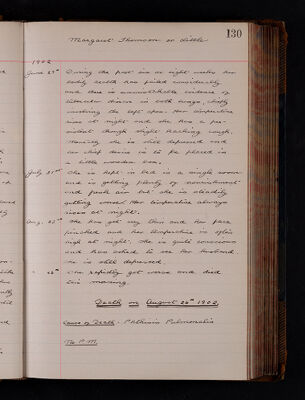 130
Margaret Thomson or Little
1902
June 23rd During the past six or eight weeks her
bodily health has failed considerably
and there is unmistakable evidence of
tubercular disease in both lungs, chiefly
involving the left apex. Her temperature
rises at night and she has a per-
sistent though slight hacking cough.
Mentally she is still depressed and
her chief desire is to be placed in
a little wooden box.
July 31st She is kept in bed in a single room
and is getting plenty of nourishment
and fresh air but she is steadily
getting worse. Her temperature always
rises at night.
Aug. She has got very thin and her face
pinched and her temperature is often
high at night. She is quite conscious
and has asked to see her husband
She is still depressed.
She rapidly got worse and died
this morning.
Death on August 26th 1902.
Cause of Death - Phthisis Pulmonalis
No P.M.